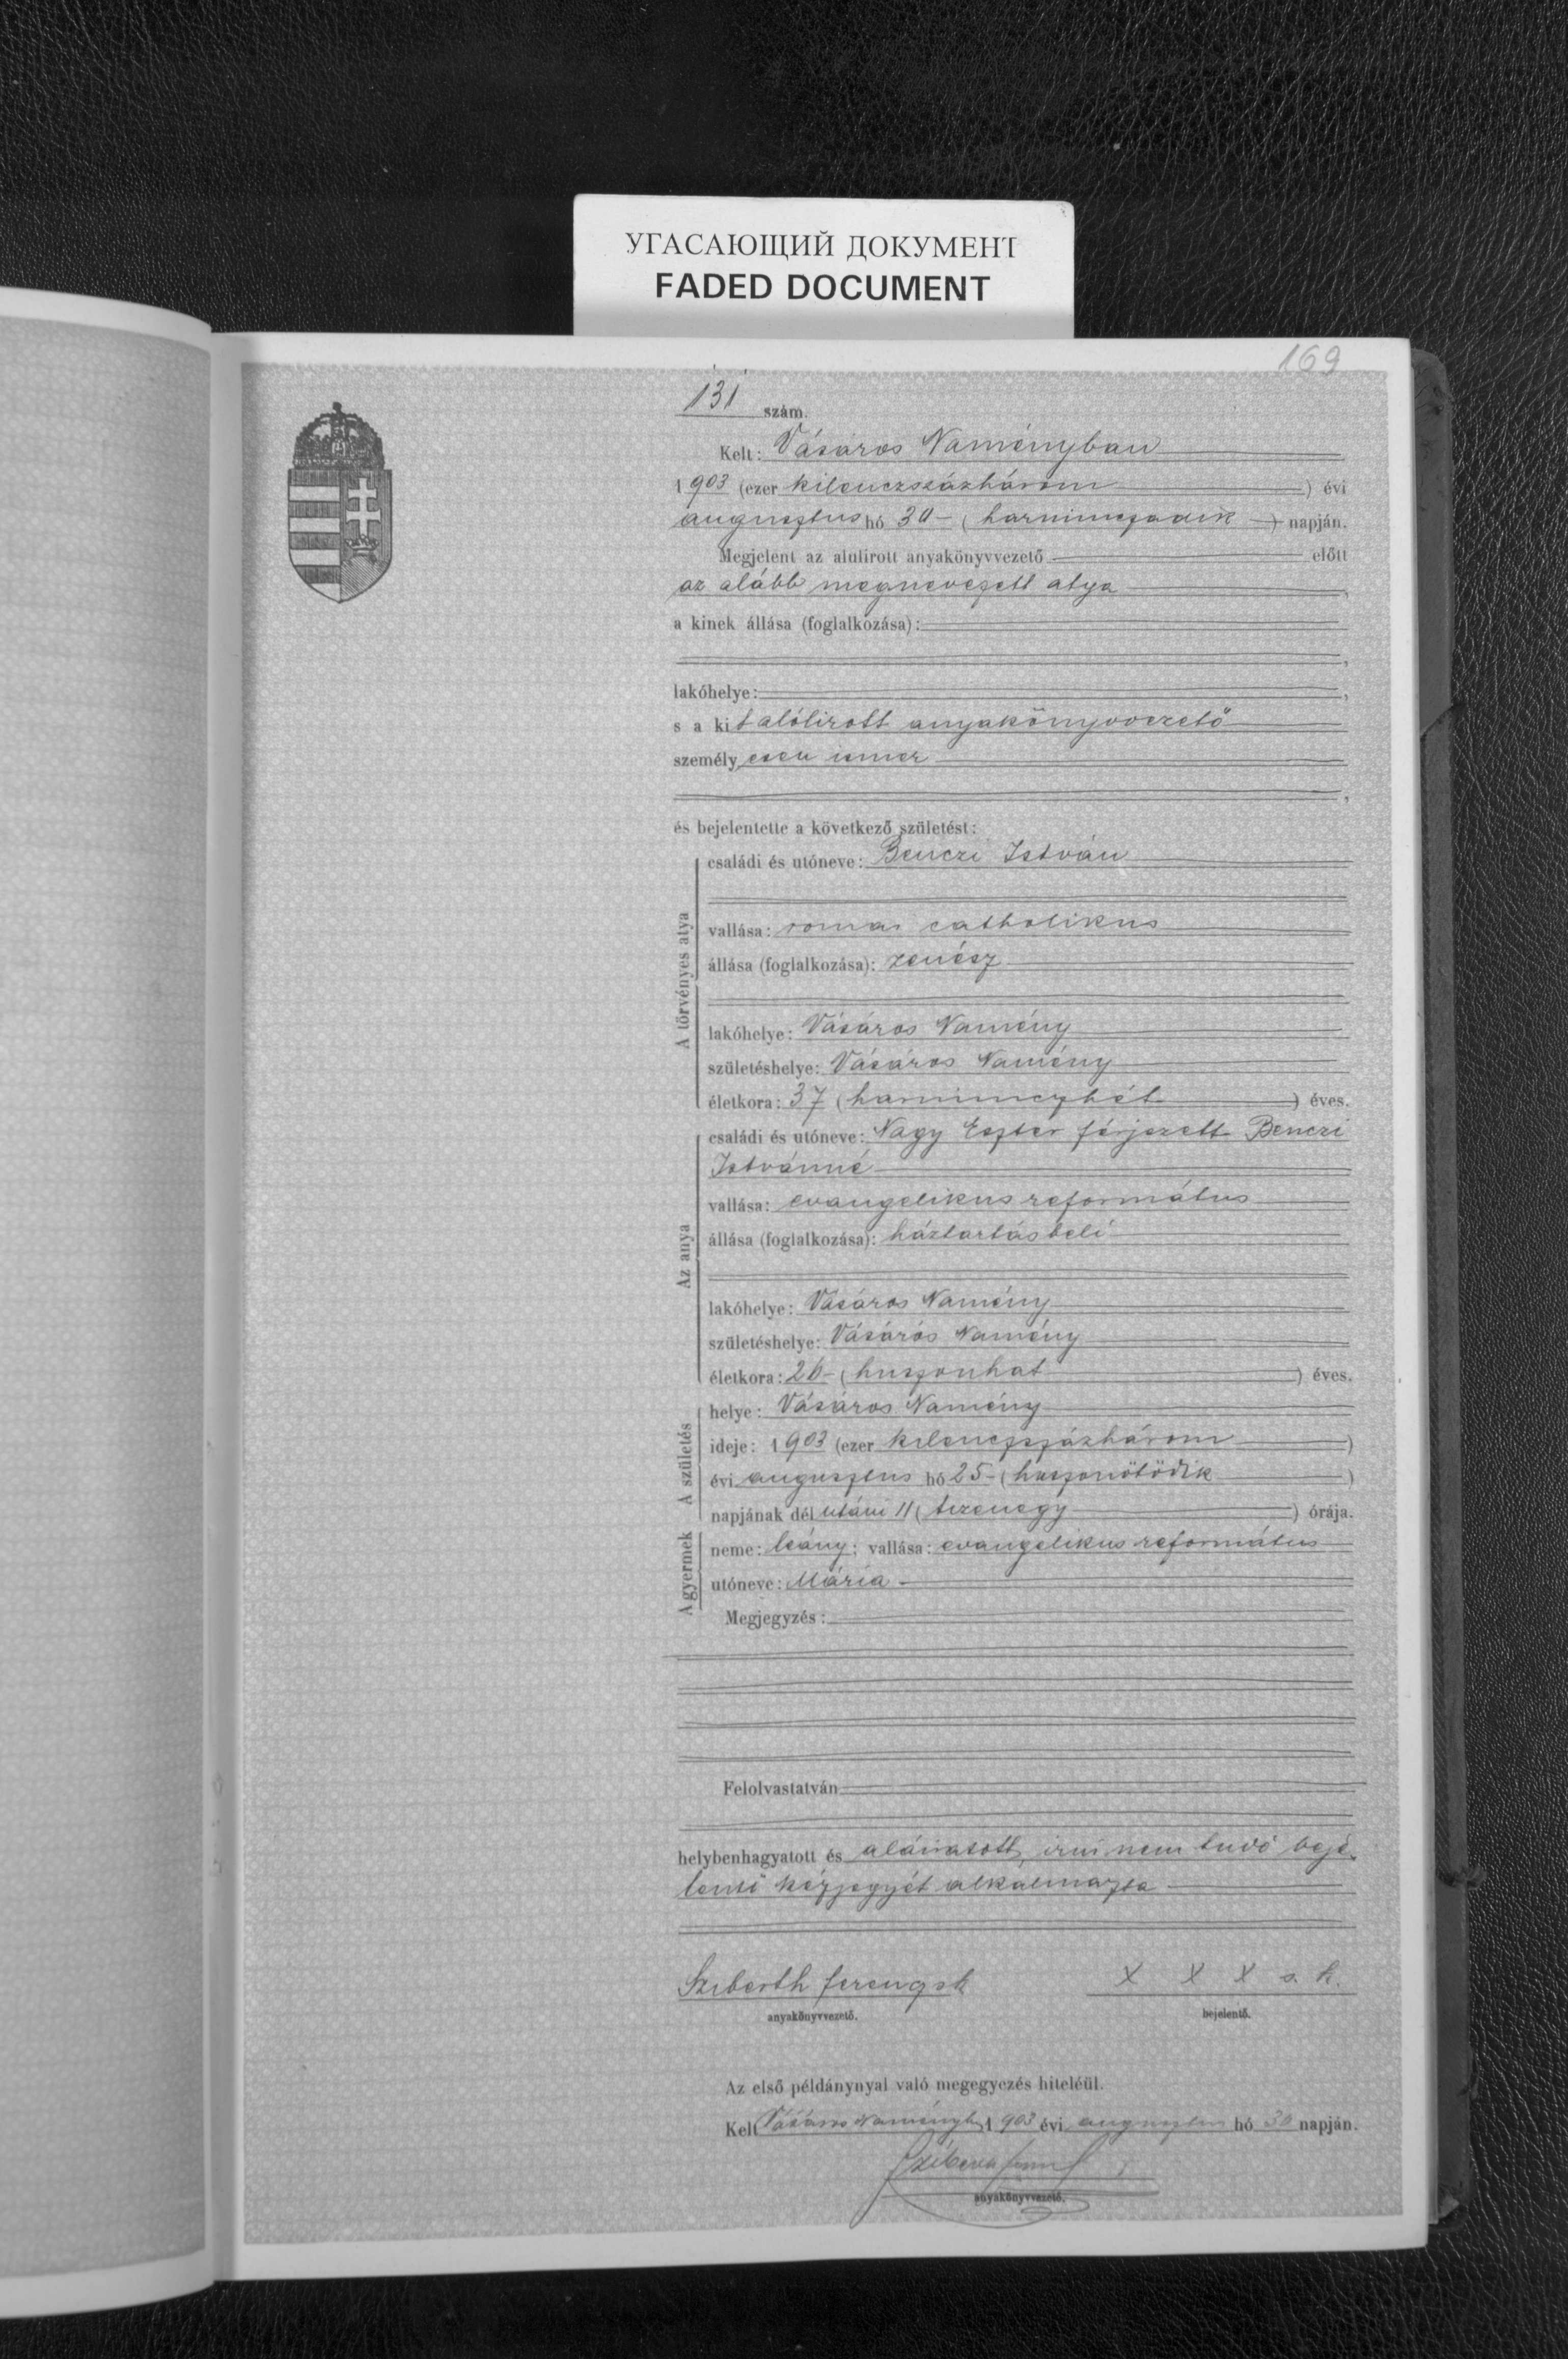 УГАСАЮЩИЙ ДОКУМЕНТ
FADED DOCUMENT
169
131 szám.
Kelt: Vásáros Naményban
1903 (ezer kilenczszázhárom) évi
augusztus hó 30 (harminczadik) napján.
Megjelent az alulirott anyakönyvvezető előtt
az alább megnevezett atya,
a kinek állása (foglalkozása):
lakóhelye:
s a kit alólirott anyakönyvvezető
személyesen ismer
és bejelentette a következő születést:
A törvényes atya
családi és utóneve: Benczi István
vallása: romai catholikus
állása (foglalkozása): zenész
lakóhelye: Vásáros Namény
születéshelye: Vásáros Namény
életkora: 37 (harminczhét) éves.
Az anya
családi és utóneve: Nagy Eszter férjezett Benczi
Istvánné
vallása: evangelikus református
állása (foglalkozása): háztartásbeli
lakóhelye: Vásáros Namény
születéshelye: Vásáros Namény
életkora: 26 (huszonhat) éves.
A születés
helye: Vásáros Namény
ideje: 1903 (ezer kilenczszázhárom)
évi augusztus hó 25 (huszonötödik)
napjának dél utáni 11 (tizenegy) órája.
A gyermek
neme: leány; vallása: evangelikus református
utóneve: Mária
Megjegyzés:
Felolvastatván
helybenhagyatott és aláiratott, irni nem tudó beje-
lentő kézjegyét alkalmazta
ferencz sk X X X s. k.
anyakönyvvezető. bejelentő.
Az első példánynyal való megegyezés hiteléül.
Kelt Vásáros Naményb 1903 évi augusztus hó 30 napján.
anyakönyvvezető.